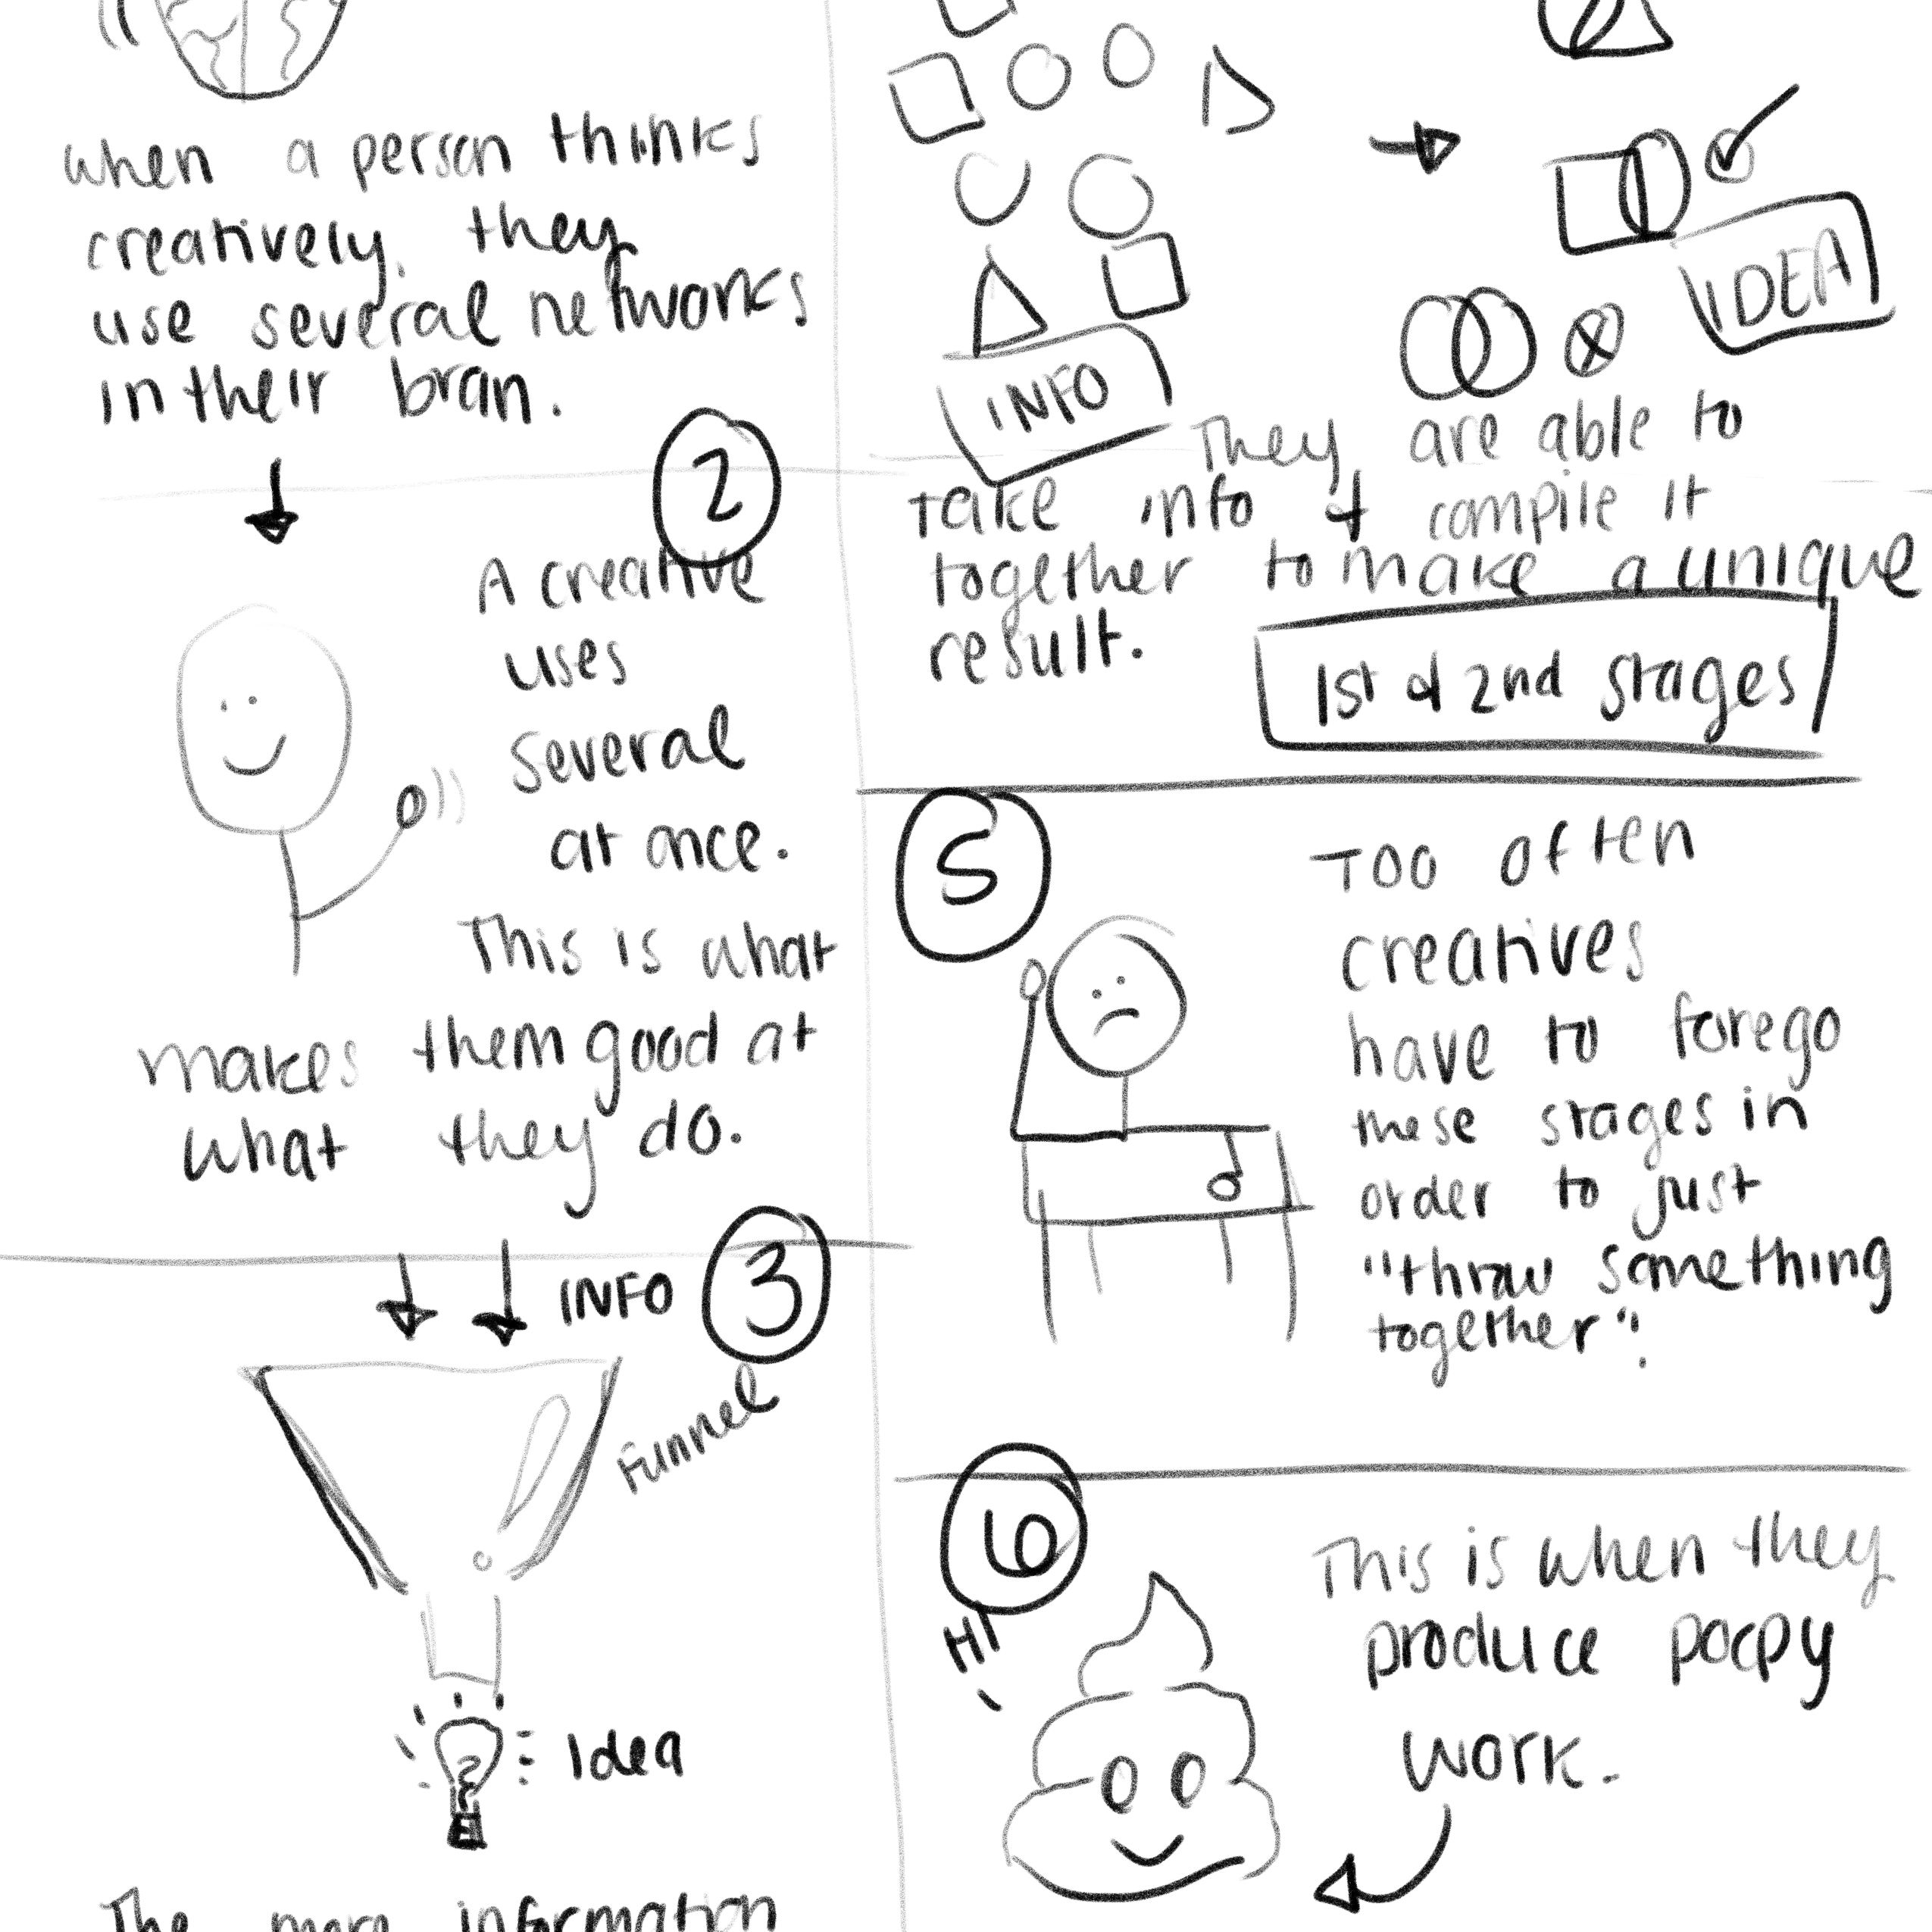 when a person thinks
creatively, they
use several networks
in their bran.
2
A creative
uses
several
at once.
This is what
makes them good at
what they do.
INFO
3
Funnel
Idea
The more information
INFO
IDEA
They are able to
take info & compile it
together to make a unique
result.
1st & 2nd stages
5
Too often
creatives
have to forego
these stages in
order to just
"throw something
together".
6
HI
This is when they
produce poopy
work.